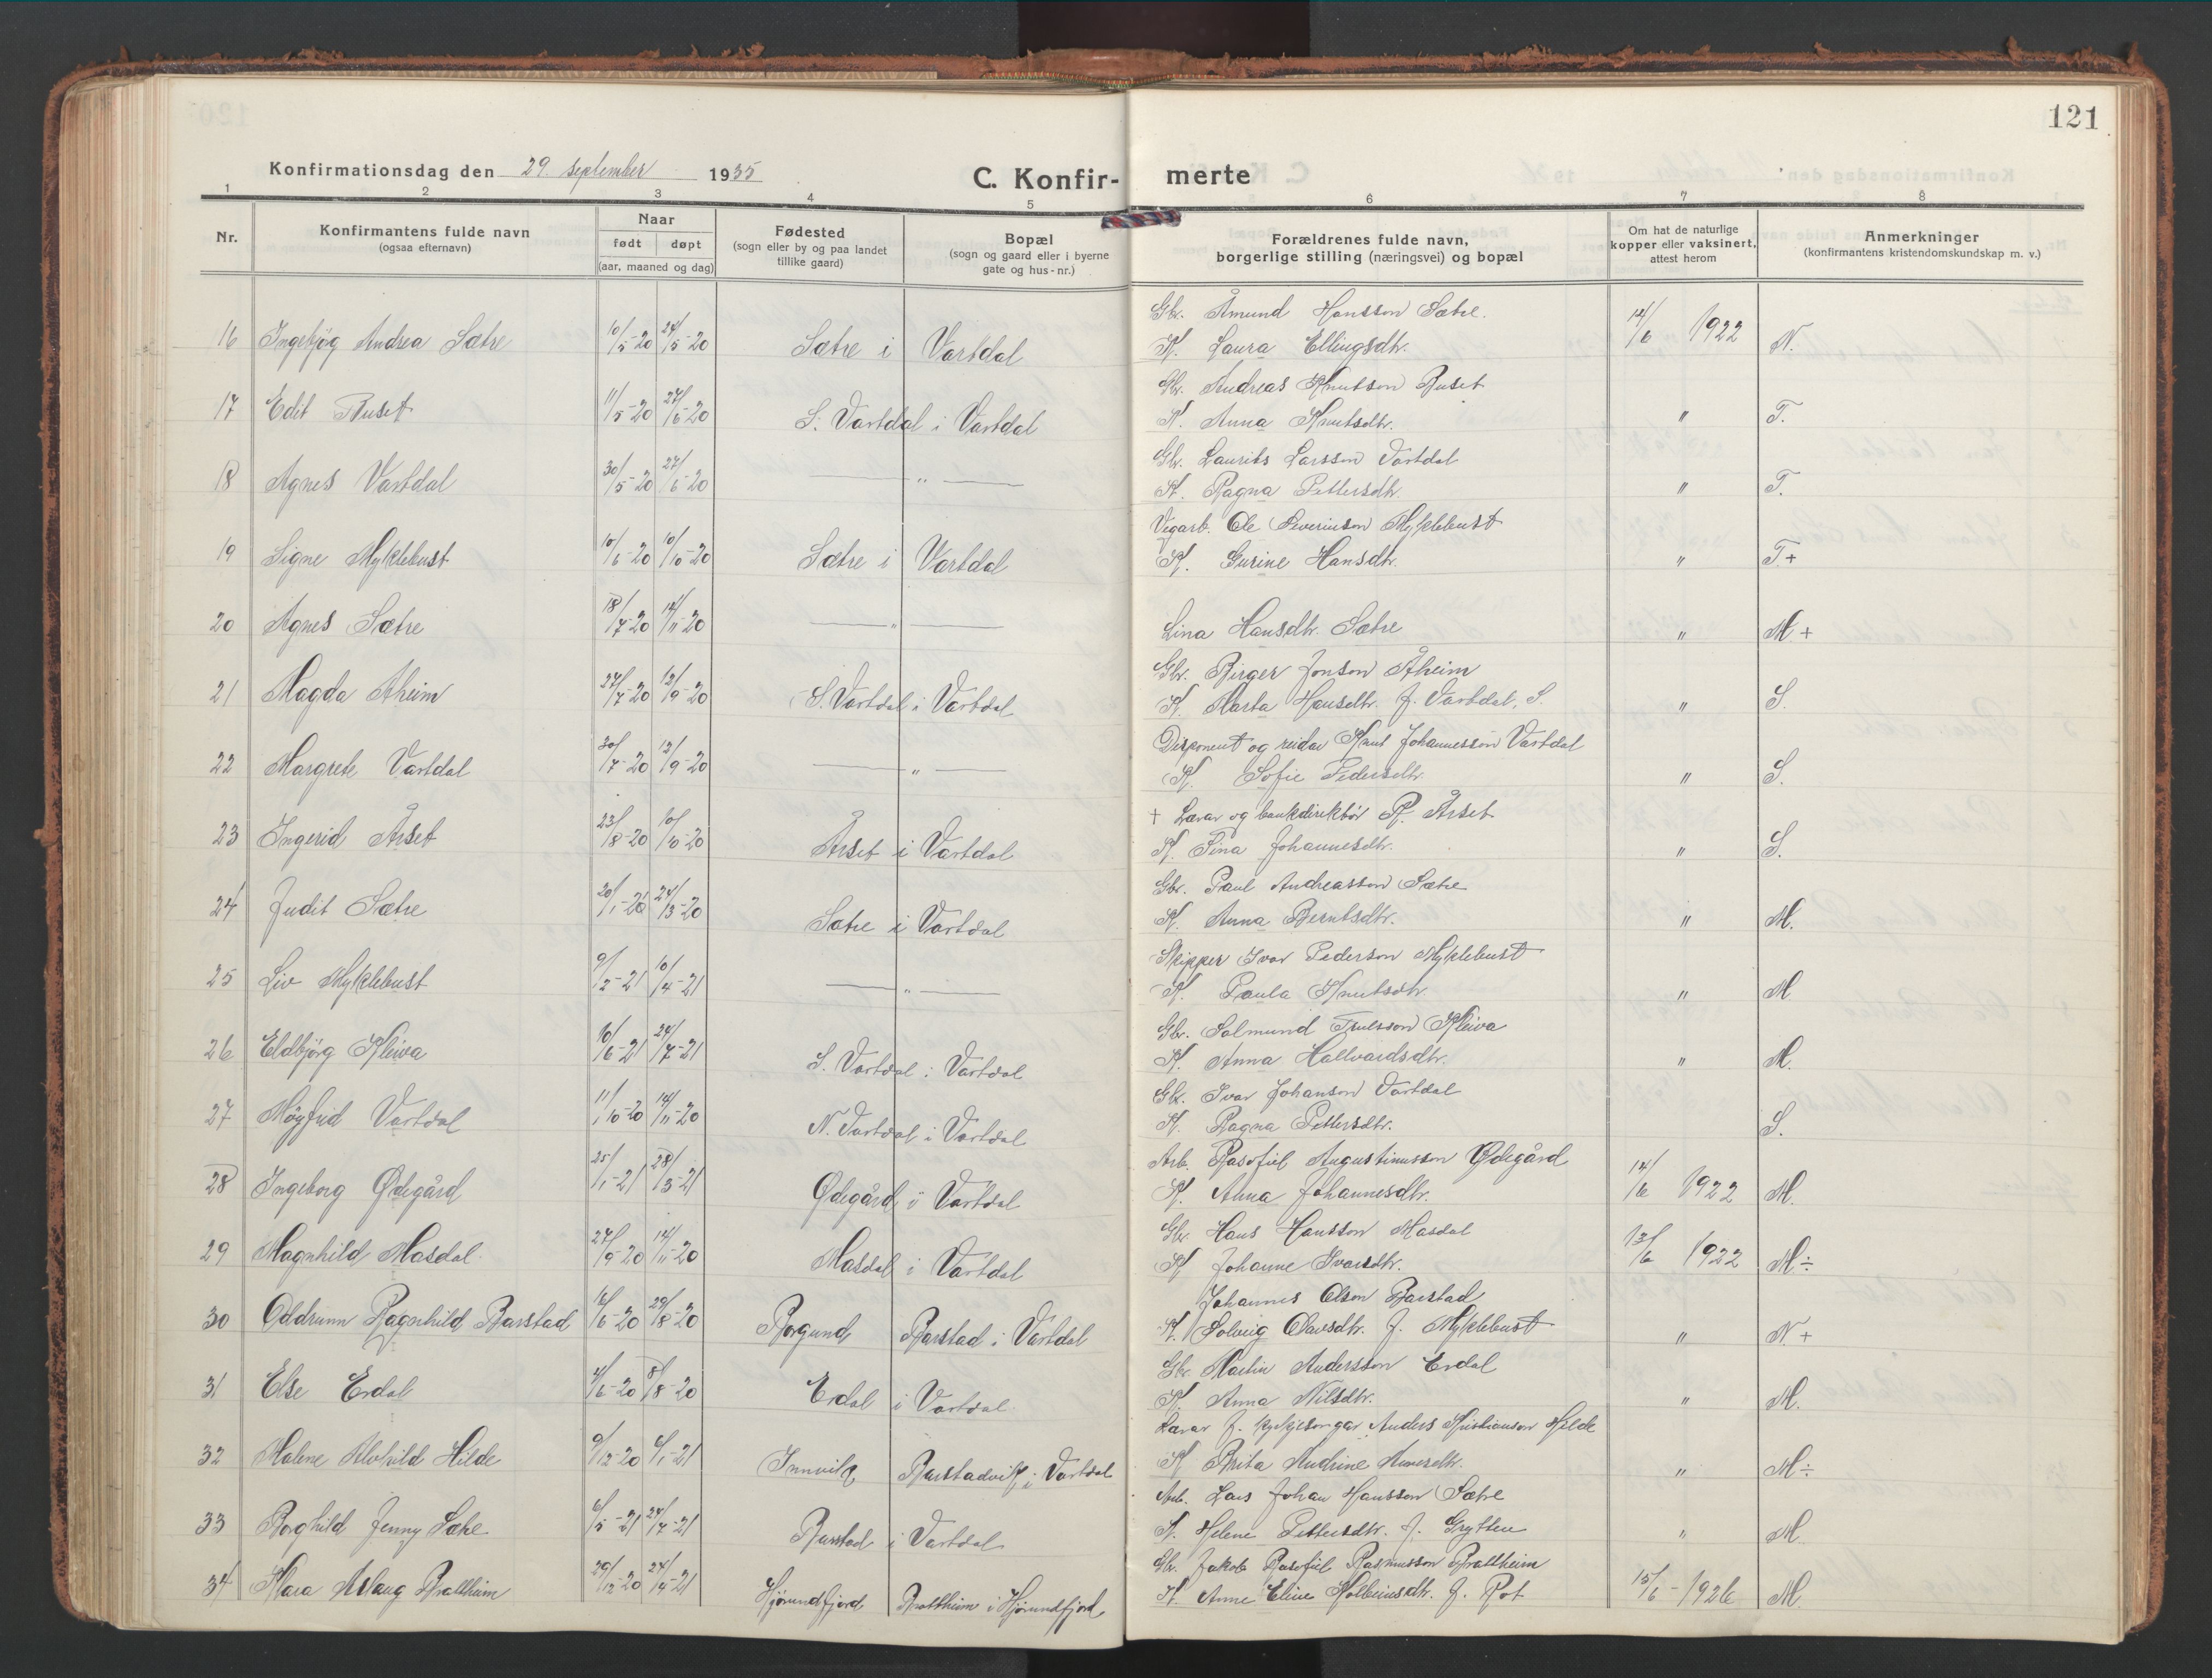 121
Konfirmationsdag den 29. september 1935
C. Konfir- merte
1 2 3 4 5 6 7 8
Nr.
Konfirmantens fulde navn
(ogsaa efternavn)
Naar
født døpt
(aar, maaned og dag)
Fødested
(sogn eller by og paa landet
tillike gaard)
Bopæl
(sogn og gaard eller i byerne
gate og hus-nr.)
Forældrenes fulde navn,
borgerlige stilling (næringsvei) og bopæl
Om hat de naturlige
kopper eller vaksinert,
attest herom
Anmerkninger
(konfirmantens kristendomskundskap m. v.)
Gbr. Åmund Hansson Sætre.
16 Ingebjøg Andrea Sætre 10/5-20 24/5-20 Sætre i Vartdal K. Laura Ellingsdtr. 14/6 1922 N.
Gbr. Andreas Knutson Buset
17 Edit Buset 11/5-20 27/6-20 S. Vartdal i Vartdal K. Anna Knutsdtr. " T.
Gbr. Laurits Larsson Vartdal
18 Agnes Vartdal 30/5-20 27/6-20 — " — K. Ragna Pettersdtr. " T.
Vegarb. Ole Severinson Myklebust
19 Signe Myklebust 10/6-20 10/10-20 Sætre i Vartdal K. Gurine Hansdtr. " T+
20 Agnes Sætre 18/7-20 14/11-20 — " — Lina Hansdtr. Sætre " M+
Gbr. Birger Jonson Åheim
21 Magda Aheim 27/7-20 12/9-20 S. Vartdal i Vartdal K. Marta Hansdtr. f. Vartdal, S. " S.
Disponent og reidar Knut Johannesson Vartdal
22 Margrete Vartdal 30/7-20 12/9-20 — " — K. Sofie Pedersdtr. " S.
+ Lærar og bankdirektør R. Årset
23 Ingerid Årset 23/8-20 10/10-20 Årset i Vartdal K. Tina Johannesdtr. " S.
Gbr. Paul Andreasson Sætre
24 Judit Sætre 20/1-20 24/3-20 Sætre i Vartdal K. Anna Berntsdtr. " M.
Skipper Ivar Pederson Myklebust
25 Liv Myklebust 9/2-21 10/4-21 — " — K. Paula Knutsdtr. " M
Gbr. Salmund Trulsson Kleiva
26 Eldbjörg Kleiva 10/6-21 24/7-21 S. Vartdal i Vartdal K. Anna Hallvardsdtr. " M.
Gbr. Ivar Johanson Vartdal
27 Möyfrid Vartdal 11/10-20 14/11-20 N. Vartdal i Vartdal K. Ragna Pettersdtr. S.
Arb. Rasofiel Augustinusson Ødegård
28 Ingeborg Ødegård 25/1-21 28/3-21 Ødegård i Vartdal K. Anna Johannesdtr. 14/6 1922 M.
Gbr. Hans Hansson Masdal
29 Magnhild Masdal 27/9-20 14/11-20 Masdal i Vartdal K. Johanne Ivarsdtr. 13/6 1922 M÷
Johannes Olson Barstad
30 Oddrunn Ragnhild Barstad 16/6-20 29/8-20 Borgund Barstad i Vartdal K. Solveig Olavsdtr. f. Myklebust " N+
Gbr. Martin Andersson Erdal
31 Else Erdal 4/6-20 8/8-20 Erdal i Vartdal K. Anna Nilsdtr. " M.
Lærar f. kyrkjesongar Anders Kristianson Hilde
32 Malene Alvhild Hilde 9/12-20 6/1-21 Innvik Barstadvik i Vartdal K Brita Andrine " M÷
Arb. Lars Johan Hansson Sætre
33 Borghild Jenny Sætre 6/5-21 24/7-21 Barstad i Vartdal K. Helene Pettersdtr. f. Grytten " M.
Gbr. Jakob Rasofiel Rasmusson Brattheim
34 Klara Aslaug Brattheim 29/12-20 24/4-21 Hjørundfjord Brattheim i Hjørundfjord K. Anne Eline f. Rot 15/6-1926 M.